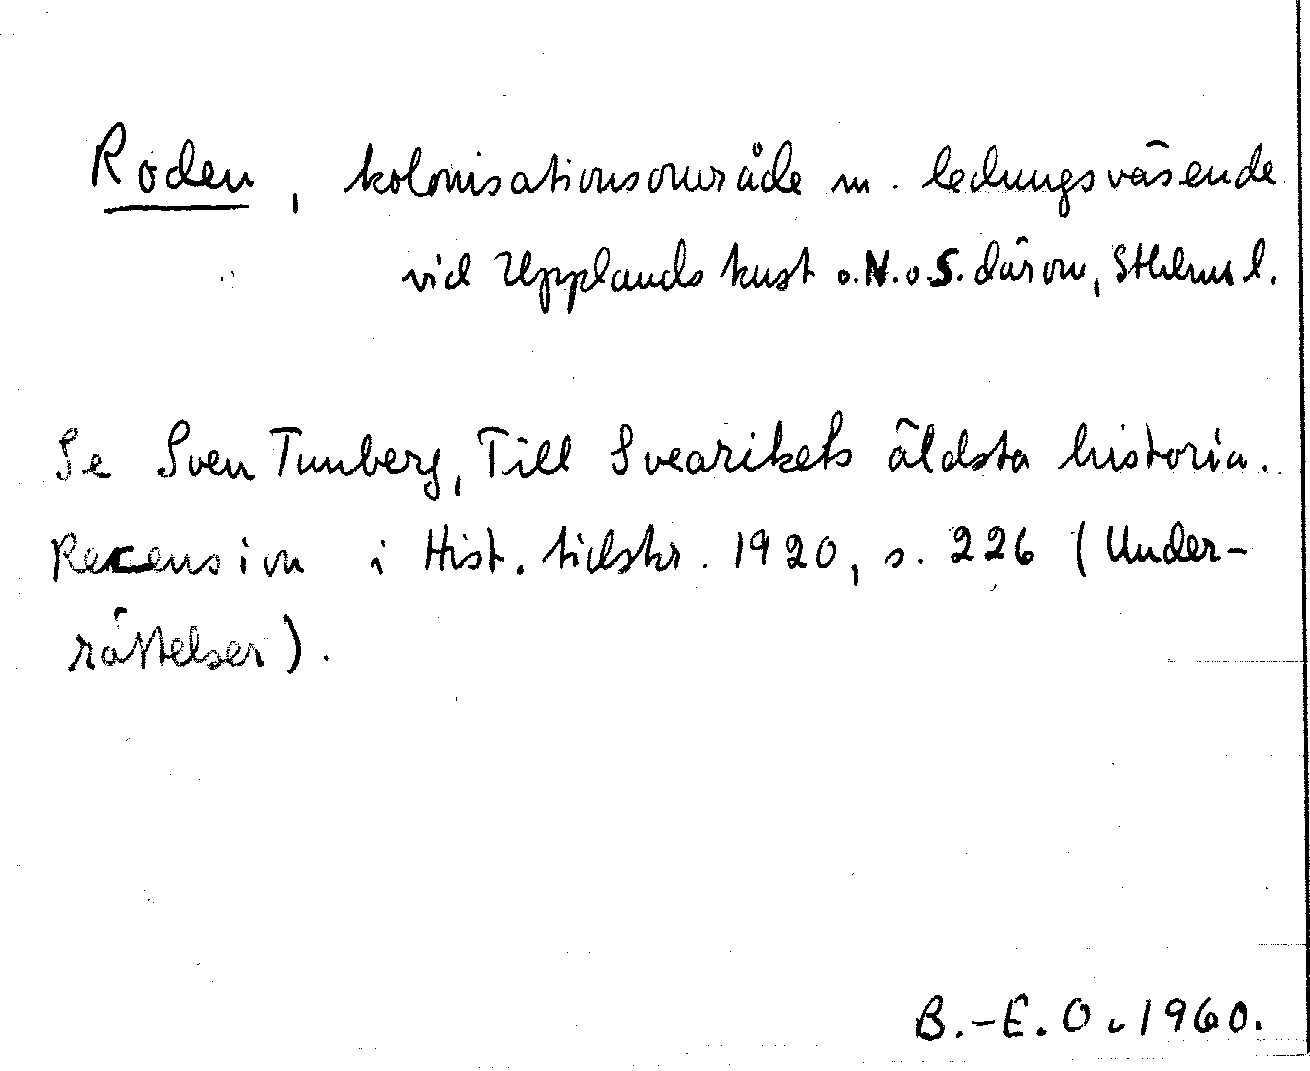 Roden, kolonisationsområde m. ledungsväsende
vid Upplands kust o. N. o. S. därom, Sthlms l.
Se Sven Tunberg, Till Svearikets äldsta historia.
Recension i Hist. tidskr. 1920, s. 226 (Under-
rättelser).
B.-E. O. 1960.